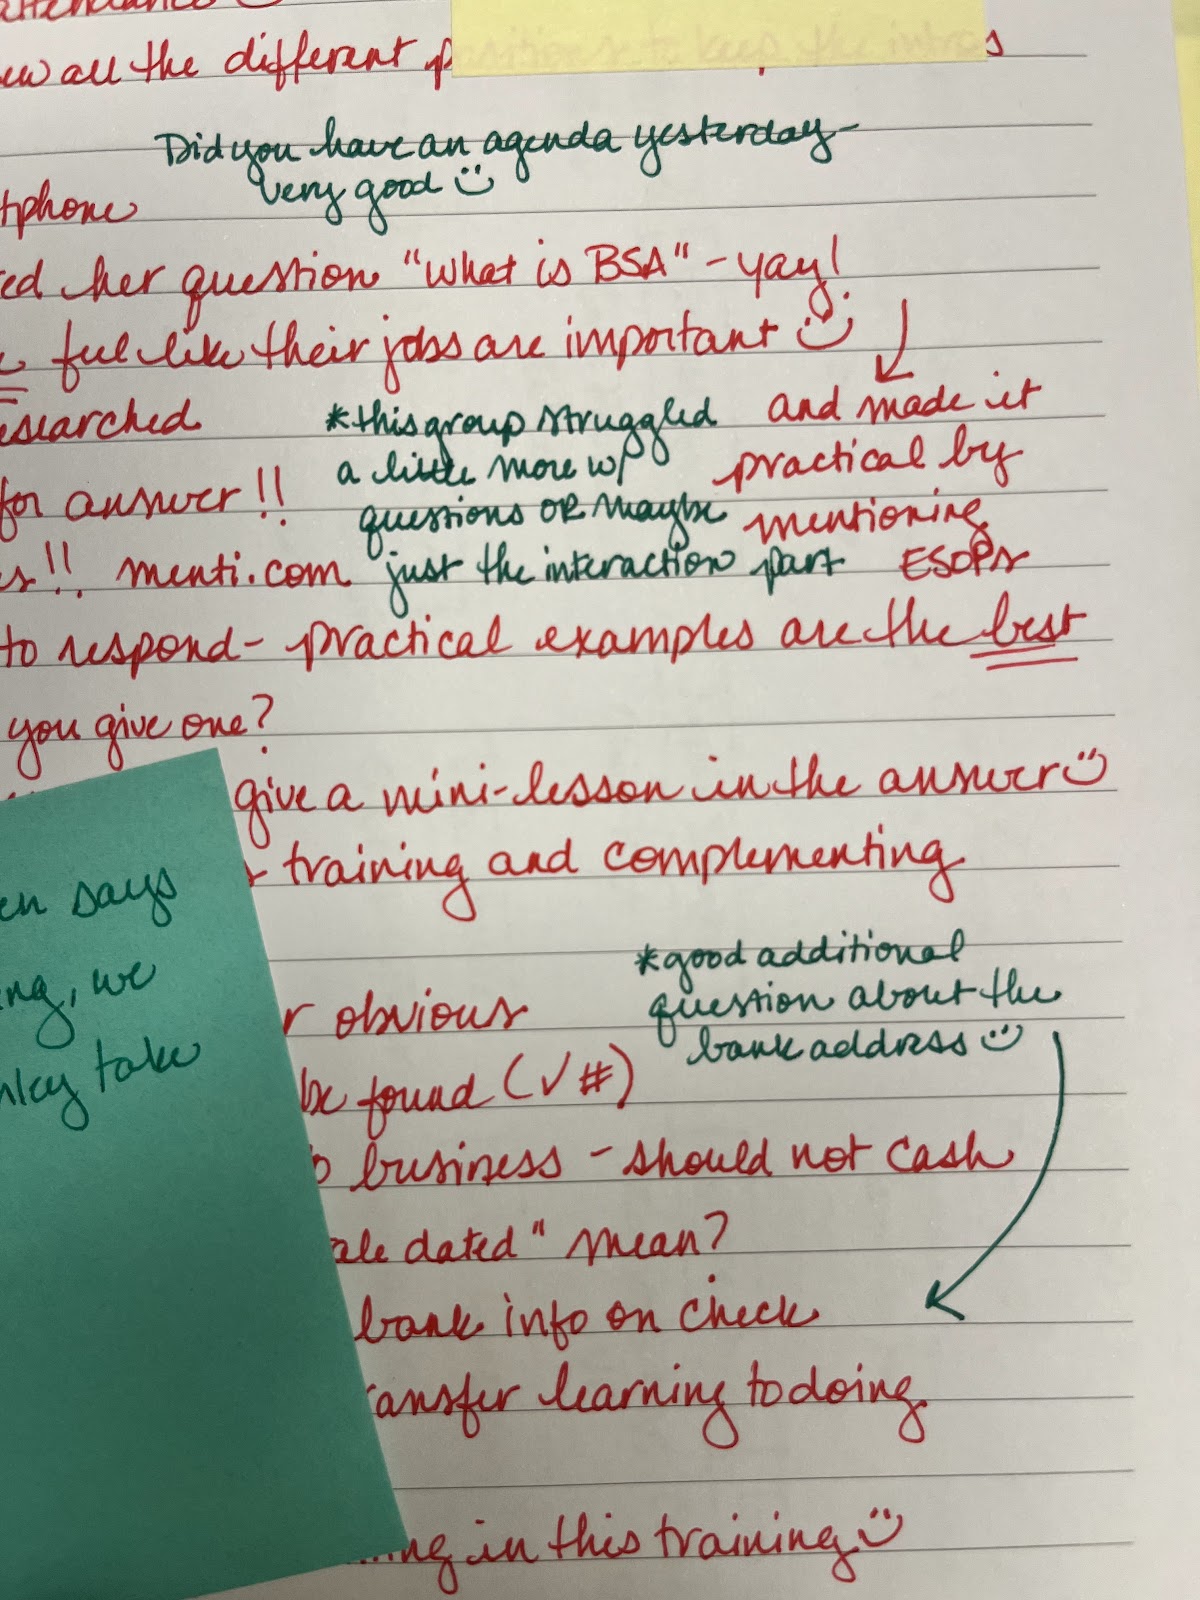 ew all the different p
Did you have an agenda yesterday-
very good
tphone
ed her question "what is BSA" - yay!
feel like their jobs are important
esearched
*this group struggled
a little more w/
questions OR maybe
just the interaction part
and made it
practical by
mentioning
ESOPs
for answer!!
s!! menti.com
to respond - practical examples are the best
you give one?
give a mini-lesson in the answer
training and complementing
en says
ng, we
nkey take
r obvious
*good additional
question about the
bank address
be found (√ #)
o business - should not cash
ale dated" mean?
bank info on check
ransfer learning to doing
ng in this training